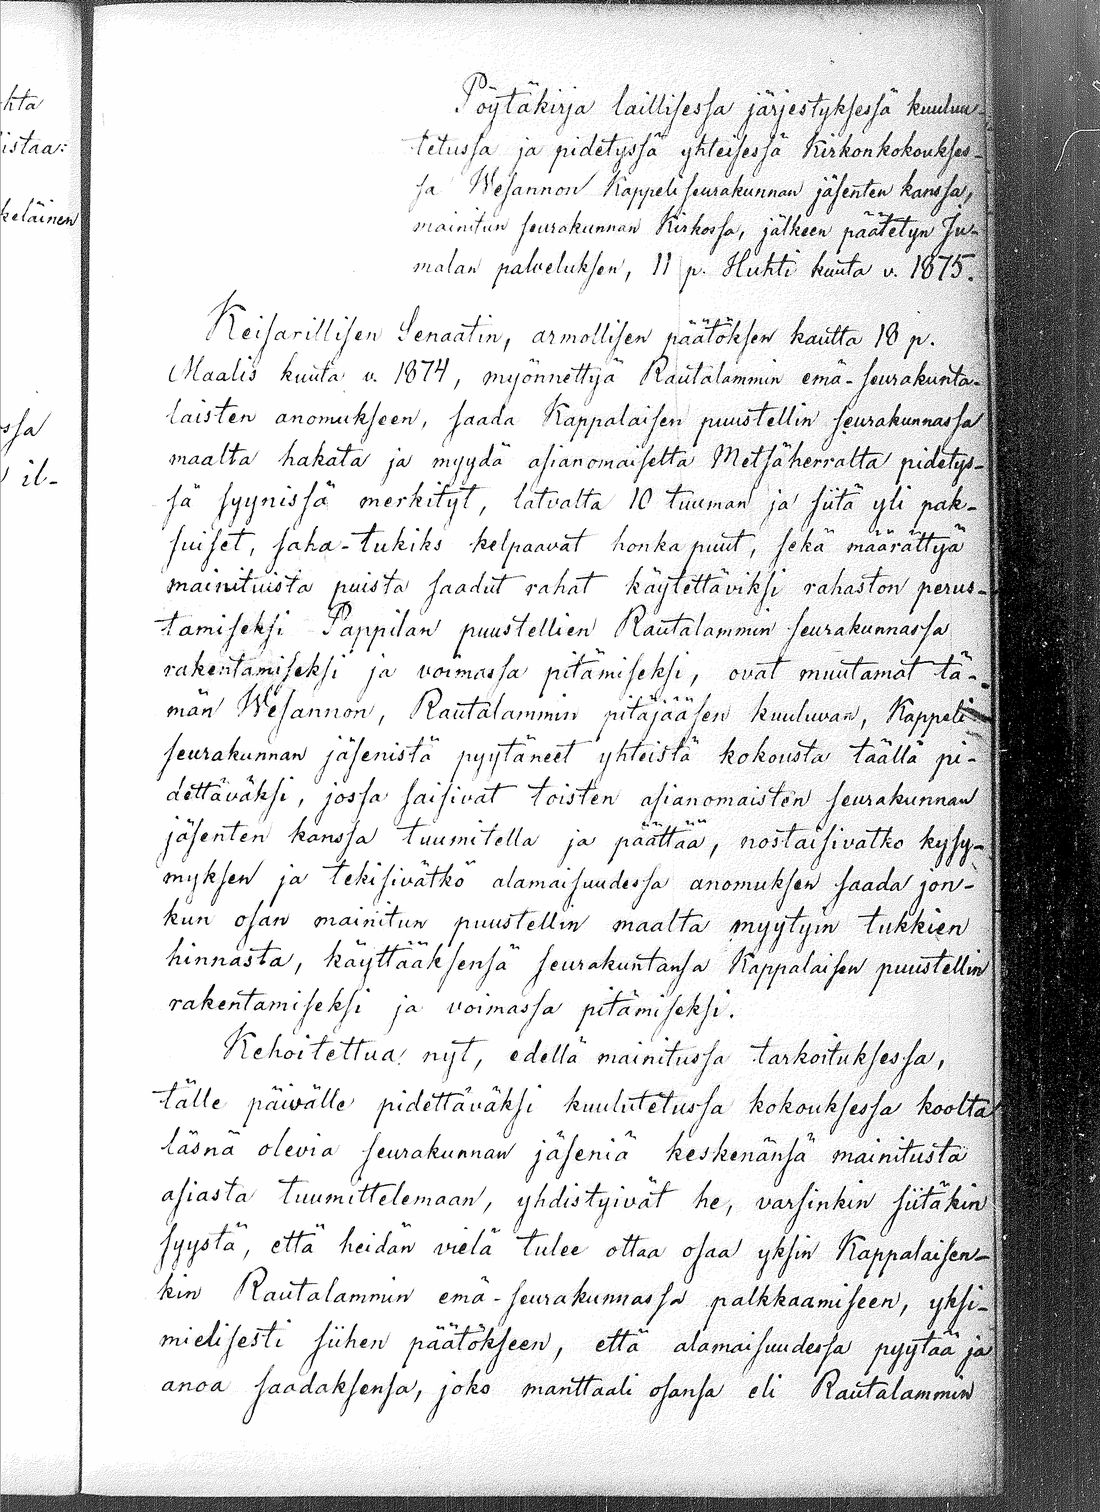 hta
istaa:
keläinen
ssa
il-
Pöytäkirja laillisessa järjestyksessä kuulu-
tetussa ja pidetyssä yhteisessä Kirkonkokoukses-
sa Wesannon Kappeli seurakunnan jäsenten kanssa,
mainitun seurakunnan Kirkossa, jälkeen päätetyn Ju-
malan palveluksen, 11 p. Huhti kuuta v. 1875.
Keisarillisen Senaatin, armollisen päätöksen kautta 18 p.
Maalis kuuta v. 1874, myönnettyä Rautalammin emä-seurakunta-
laisten anomukseen, saada Kappalaisen puustellin seurakunnassa
maalta hakata ja myydä asianomaiselta Metsäherralta pidetys-
sä syynissä merkityt, latvalta 10 tuuman ja siitä yli pak-
suiset, saha-tukiks kelpaavat honka puut, sekä määrättyä
mainituista puista saadut rahat käytettäviksi rahaston perus-
tamiseksi Pappilan puustellien Rautalammin seurakunnassa
rakentamiseksi ja voimassa pitämiseksi, ovat muutamat tä-
män Wesannon, Rautalammin pitäjääsen kuuluvan, Kappeli
seurakunnan jäsenistä pyytäneet yhteistä kokousta täällä pi-
dettäväksi, jossa saisivat toisten asianomaisten seurakunnan
jäsenten kanssa tuumitella ja päättää, nostaisivatko kysy-
myksen ja tekisivätkö alamaisuudessa anomuksen saada jon-
kun osan mainitun puustellin maalta myytyin tukkien
hinnasta, käyttääksensä seurakuntansa Kappalaisen puustellin
rakentamiseksi ja voimassa pitämiseksi.
Kehoitettua nyt, edellä mainitussa tarkoituksessa,
tälle päivälle pidettäväksi kuulutetussa kokouksessa koolta
läsnä olevia seurakunnan jäseniä keskenänsä mainitusta
asiasta tuumittelemaan, yhdistyivät he, varsinkin siitäkin
syystä, että heidän vielä tulee ottaa osaa yksin Kappalaisen-
kin Rautalammin emä-seurakunnassa palkkaamiseen, yksi-
mielisesti siihen päätökseen, että alamaisuudessa pyytää ja
anoa saadaksensa, joko manttaali osansa eli Rautalammin